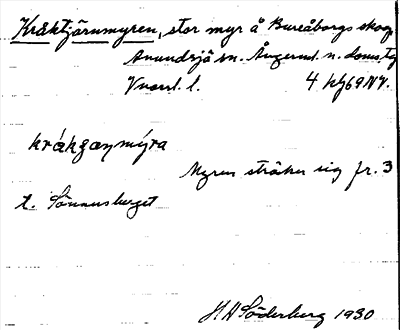 Kråktjärnmyren, stor myr å Bureåborgs skog
Anundsjö sn. Ångerml. n. doms.
Vuorl. l. 4 hg69NV.
kråkganmýra
Myren sträcker sig fr. 3
t. Sönnusberget
H A Söderberg 1930